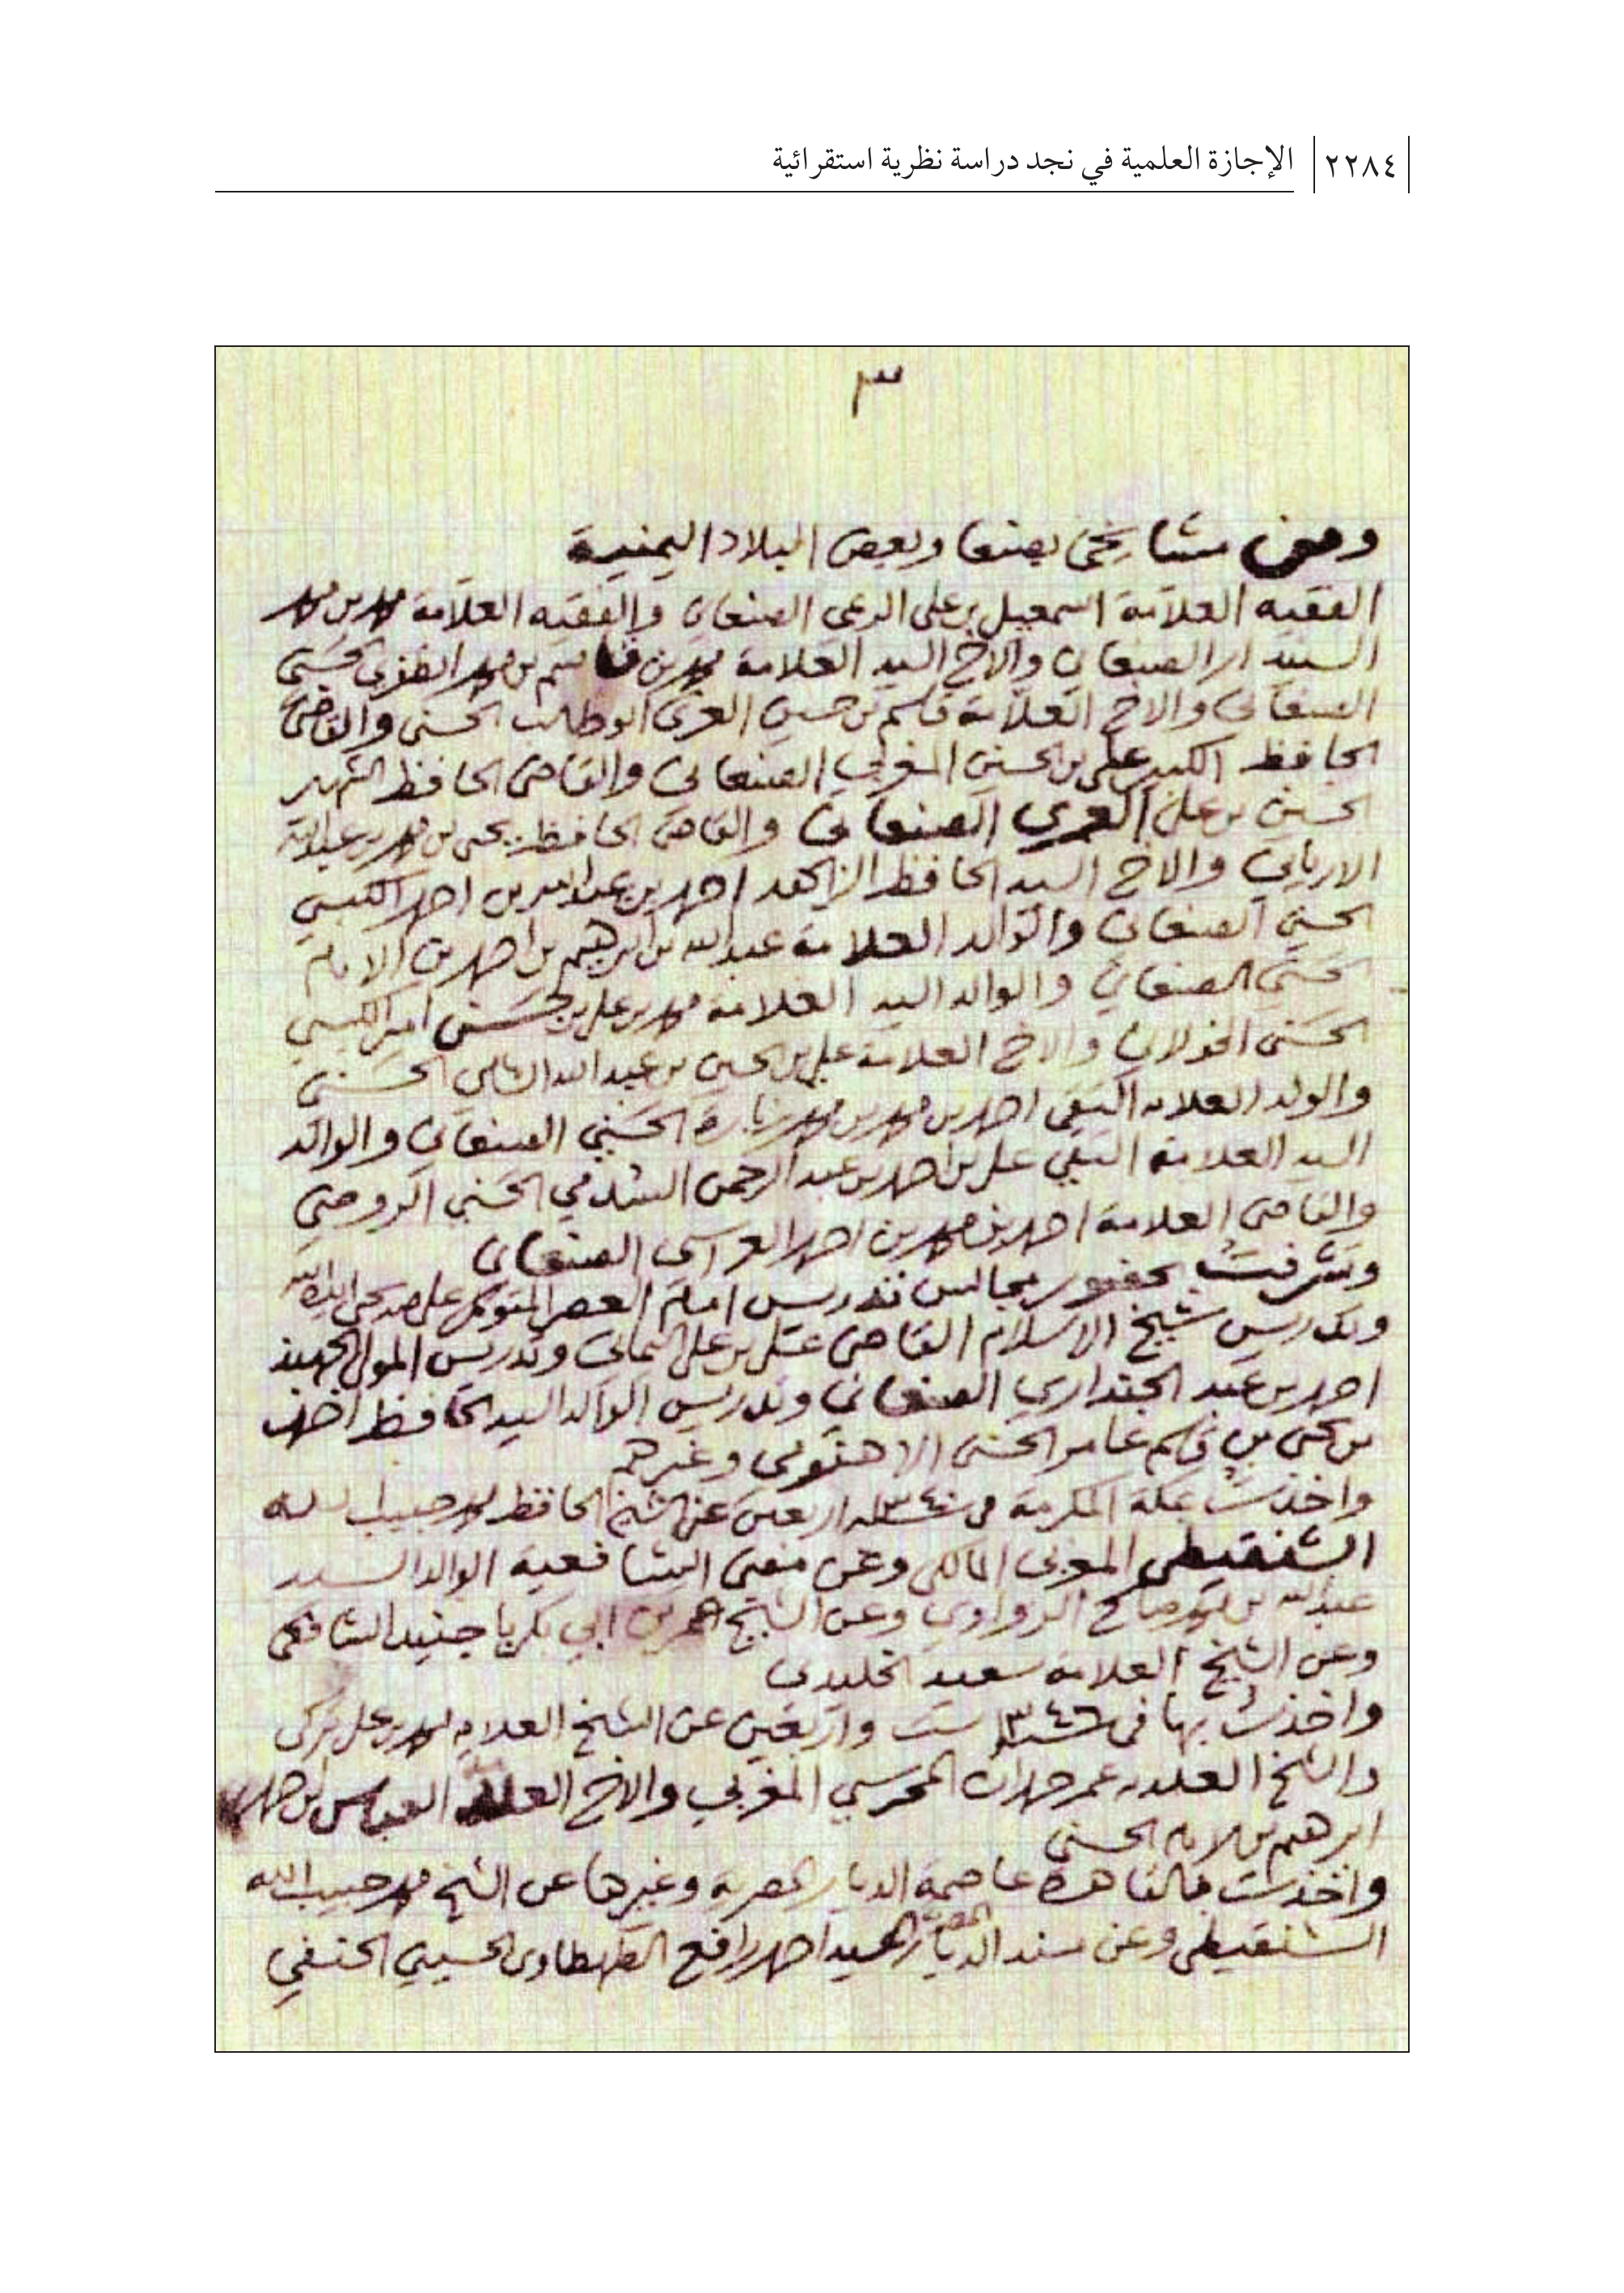 ٢٢٨٤ الإجازة العلمية في نجد دراسة نظرية استقرائية
٣
ومن مشايخي بصنعا وبعض البلاد اليمنية
الفقيه العلامة اسمعيل بن على الصنعاني والفقيه العلامة محمد بن محمد
الصنعاني والاخ السيد العلامة محمد بن قاسم بن محمد الظفري الحسني
الصنعاني والاخ العلامة قاسم بن حسين العزي ابو طالب الحسني والقاضي
الحافظ الكبير علي بن الحسين المغربي الصنعاني والقاضي الحافظ الشهير
الحسين بن علي العمري الصنعاني والقاضي الحافظ يحيى بن محمد بن عبدالله
الارياني والاخ السيد الحافظ احمد بن عبدالله بن احمد الكبسي
الحسني الصنعاني والوالد العلامة عبدالله بن ابرهيم بن احمد بن الامام
الحسني الصنعاني والوالد السيد العلامة محمد بن علي بن حسين الكبسي
الحسني الخولاني والاخ العلامة علي بن الحسين بن عبدالله الشامي الحسني
والولد العلامه التقي احمد بن محمد بن محمد زبارة الحسني الصنعاني والوالد
السيد العلامة التقي علي بن احمد بن عبد الرحمن السدمي الحسني الروضي
والقاضي العلامة احمد بن محمد بن احمد العراسي الصنعاني
وتشرفت بحضور مجالس تدريس امام العصر المتوكل على الله يحيى
وتدريس شيخ الاسلام القاضي علي بن علي اليماني وتدريس المولى الجهبذ
احمد بن عبد الله الجنداري الصنعاني وتدريس الوالد السيد الحافظ احمد
بن يحيى بن قاسم عامر الحسني الاهنومي وغيرهم
واخذت بمكة المكرمة في سنة ١٣٤٠ اربعين عن الشيخ الحافظ محمد حبيب الله
الشنقيطي المغربي المالكي وعن مفتي الشافعية الوالد السيد
عبدالله بن محمد صالح الزواوي وعن الشيخ عمر بن ابي بكر باجنيد الشافعي
وعن الشيخ العلامه سعيد الخليدي
واخذت بها في سنة ١٣٤٦ ست واربعين عن الشيخ العلامه محمد علي تركي
والشيخ العلامه عمر حمدان المحرسي المغربي والاخ العباس بن احمد
ابرهيم بن الامام الحسني
واخذت بالقاهرة عاصمة الديار المصرية وغيرها عن الشيخ محمد حبيب الله
الشنقيطي وعن مسند الديار المصرية السيد احمد رافع الطهطاوي الحسيني الحنفي